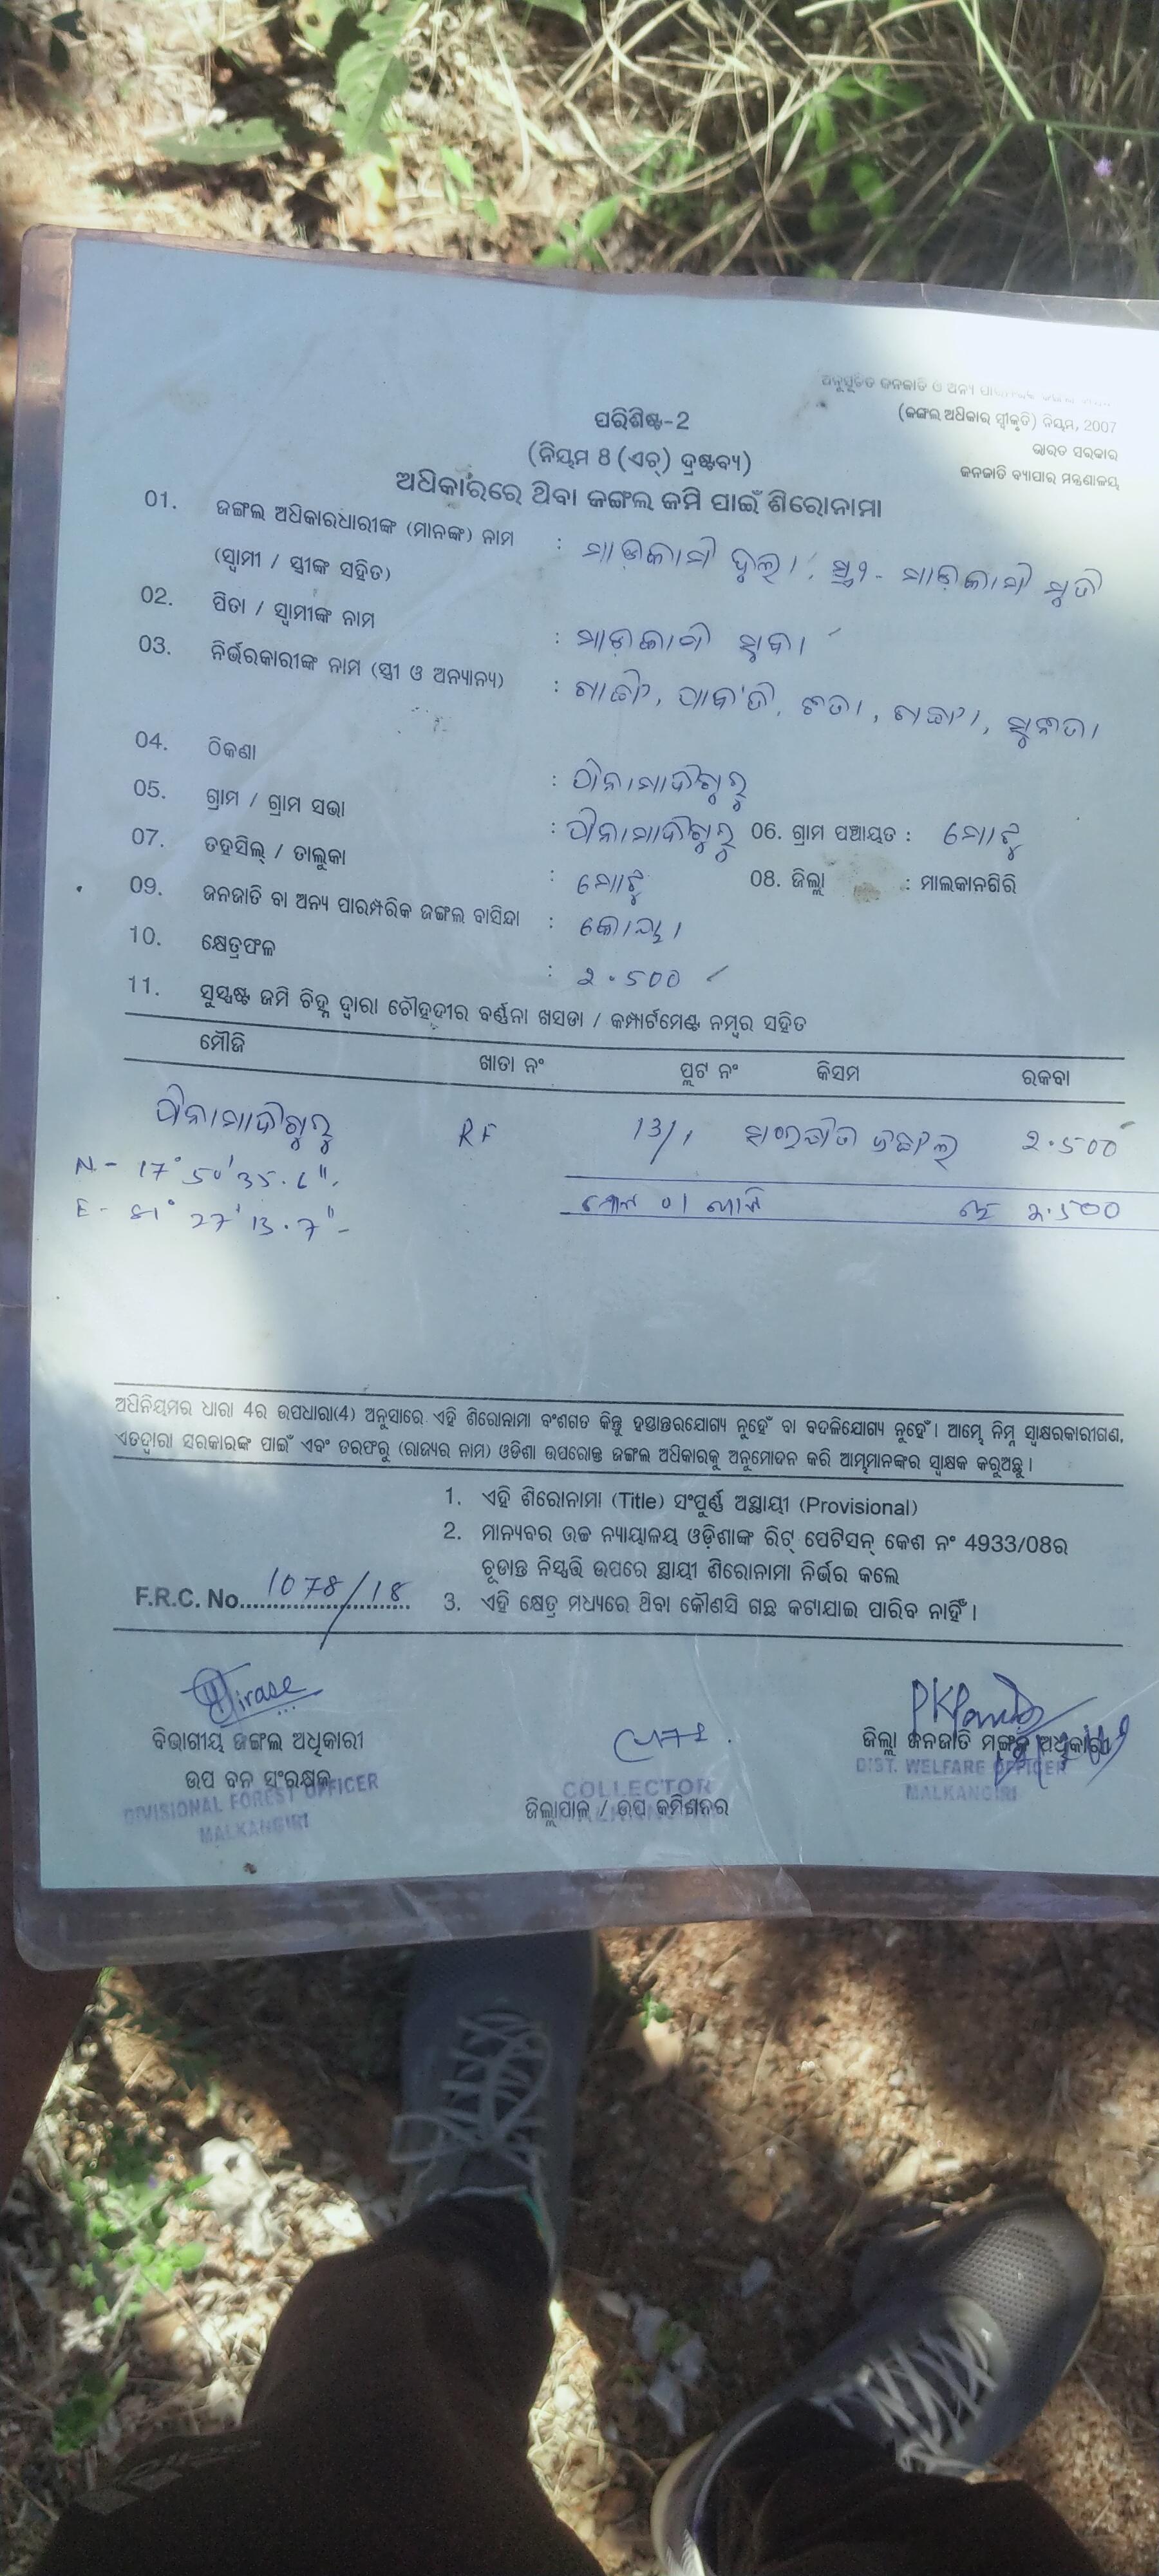 ଅନୁସୂଚିତ ଜନଜାତି ଓ ଅନ୍ୟ
(ଜଙ୍ଗଲ ଅଧିକାର ସ୍ଵୀକୃତି) ନିୟମ, 2007
ଭାରତ ସରକାର
ଜନଜାତି ବ୍ୟାପାର ମନ୍ତ୍ରଣାଳୟ
ପରିଶିଷ୍ଟ-2
(ନିୟମ 8 (ଏଚ୍) ଦ୍ରଷ୍ଟବ୍ୟ)
ଅଧିକାରରେ ଥିବା ଜଙ୍ଗଲ ଜମି ପାଇଁ ଶିରୋନାମା
01. ଜଙ୍ଗଲ ଅଧିକାରଧାରୀଙ୍କ (ମାନଙ୍କ) ନାମ : ମାଡ଼କାମୀ ଦୁଲା, ସ୍ତ୍ରୀ- ମାଡ଼କାମୀ ମୁତି
(ସ୍ୱାମୀ / ସ୍ତ୍ରୀଙ୍କ ସହିତ)
02. ପିତା / ସ୍ୱାମୀଙ୍କ ନାମ : ମାଡ଼କାମୀ
03. ନିର୍ଭରକାରୀଙ୍କ ନାମ (ସ୍ତ୍ରୀ ଓ ଅନ୍ୟାନ୍ୟ) :
04. ଠିକଣା :
05. ଗ୍ରାମ / ଗ୍ରାମ ସଭା : 06. ଗ୍ରାମ ପଞ୍ଚାୟତ : ମୋଟୁ
07. ତହସିଲ୍ / ତାଲୁକା : ମୋଟୁ 08. ଜିଲ୍ଲା : ମାଲକାନଗିରି
09. ଜନଜାତି ବା ଅନ୍ୟ ପାରମ୍ପରିକ ଜଙ୍ଗଲ ବାସିନ୍ଦା : କୋୟା
10. କ୍ଷେତ୍ରଫଳ : ୨.500
11. ସୁସ୍ପଷ୍ଟ ଜମି ଚିହ୍ନ ଦ୍ୱାରା ଚୌହଦୀର ବର୍ଣ୍ଣନା ଖସଡା / କମ୍ପାର୍ଟମେଣ୍ଟ ନମ୍ବର ସହିତ
ମୌଜି ଖାତା ନଂ ପ୍ଲଟ ନଂ କିସମ ରକବା
RF 13/1 ସଂରକ୍ଷିତ ଜଙ୍ଗଲ ୨.500
N- 17° 50' 35.6"
E- 81° 27' 13.7"
୨.500
ଅଧିନିୟମର ଧାରା 4ର ଉପଧାରା(4) ଅନୁସାରେ ଏହି ଶିରୋନାମା ବଂଶଗତ କିନ୍ତୁ ହସ୍ତାନ୍ତରଯୋଗ୍ୟ ନୁହେଁ ବା ବଦଳିଯୋଗ୍ୟ ନୁହେଁ। ଆମ୍ଭେ ନିମ୍ନ ସ୍ୱାକ୍ଷରକାରୀଗଣ,
ଏତଦ୍ୱାରା ସରକାରଙ୍କ ପାଇଁ ଏବଂ ତରଫରୁ (ରାଜ୍ୟର ନାମ) ଓଡିଶା ଉପରୋକ୍ତ ଜଙ୍ଗଲ ଅଧିକାରକୁ ଅନୁମୋଦନ କରି ଆମ୍ଭମାନଙ୍କର ସ୍ୱାକ୍ଷକ କରୁଅଛୁ।
1. ଏହି ଶିରୋନାମା (Title) ସଂପୂର୍ଣ୍ଣ ଅସ୍ଥାୟୀ (Provisional)
2. ମାନ୍ୟବର ଉଚ୍ଚ ନ୍ୟାୟାଳୟ ଓଡ଼ିଶାଙ୍କ ରିଟ୍ ପେଟିସନ୍ କେଶ ନଂ 4933/08ର
ଚୂଡାନ୍ତ ନିସ୍ପତ୍ତି ଉପରେ ସ୍ଥାୟୀ ଶିରୋନାମା ନିର୍ଭର କଲେ
F.R.C. No. 1078/18
3. ଏହି କ୍ଷେତ୍ର ମଧ୍ୟରେ ଥିବା କୌଣସି ଗଛ କଟାଯାଇ ପାରିବ ନାହିଁ।
ବିଭାଗୀୟ ଜଙ୍ଗଲ ଅଧିକାରୀ
ଉପ ବନ ସଂରକ୍ଷକ
DIVISIONAL FOREST OFFICER
MALKANGIRI
COLLECTOR
ଜିଲ୍ଲାପାଳ / ଉପ କମିଶନର
ଜିଲ୍ଲା ଜନଜାତି ମଙ୍ଗଳ ଅଧିକାରୀ
DIST. WELFARE OFFICER
MALKANGIRI